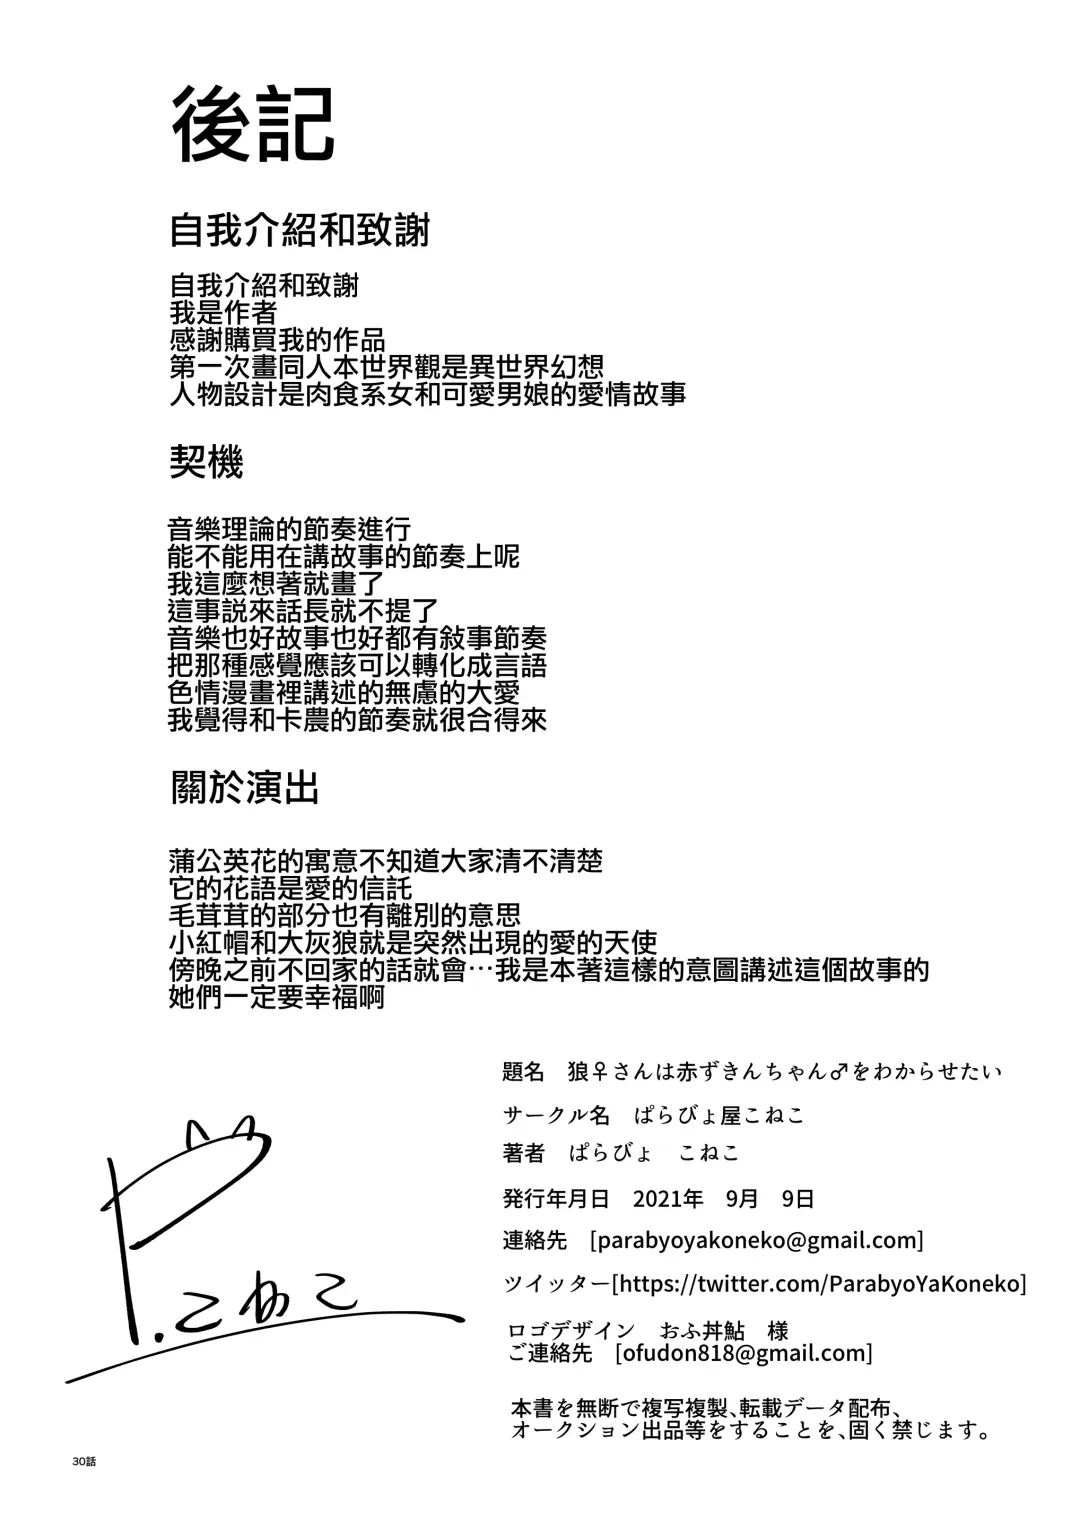 後記
自我介紹和致謝
自我介紹和致謝
我是作者
感謝購買我的作品
第一次畫同人本世界觀是異世界幻想
人物設計是肉食系女和可愛男娘的愛情故事
契機
音樂理論的節奏進行
能不能用在講故事的節奏上呢
我這麼想著就畫了
這事説來話長就不提了
音樂也好故事也好都有敍事節奏
把那種感覺應該可以轉化成言語
色情漫畫裡講述的無慮的大愛
我覺得和卡農的節奏就很合得來
關於演出
蒲公英花的寓意不知道大家清不清楚
它的花語是愛的信託
毛茸茸的部分也有離別的意思
小紅帽和大灰狼就是突然出現的愛的天使
傍晚之前不回家的話就會…我是本著這樣的意圖講述這個故事的
她們一定要幸福啊
題名　狼♀さんは赤ずきんちゃん♂をわからせたい
サークル名　ぱらびょ屋こねこ
著者　ぱらびょ　こねこ
発行年月日　2021年　9月　9日
連絡先　[parabyoyakoneko@gmail.com]
ツイッター[https://twitter.com/ParabyoYaKoneko]
ロゴデザイン　おふ丼鮎　様
ご連絡先　[ofudon818@gmail.com]
本書を無断で複写複製、転載データ配布、
オークション出品等をすることを、固く禁じます。
P.こねこ
30話